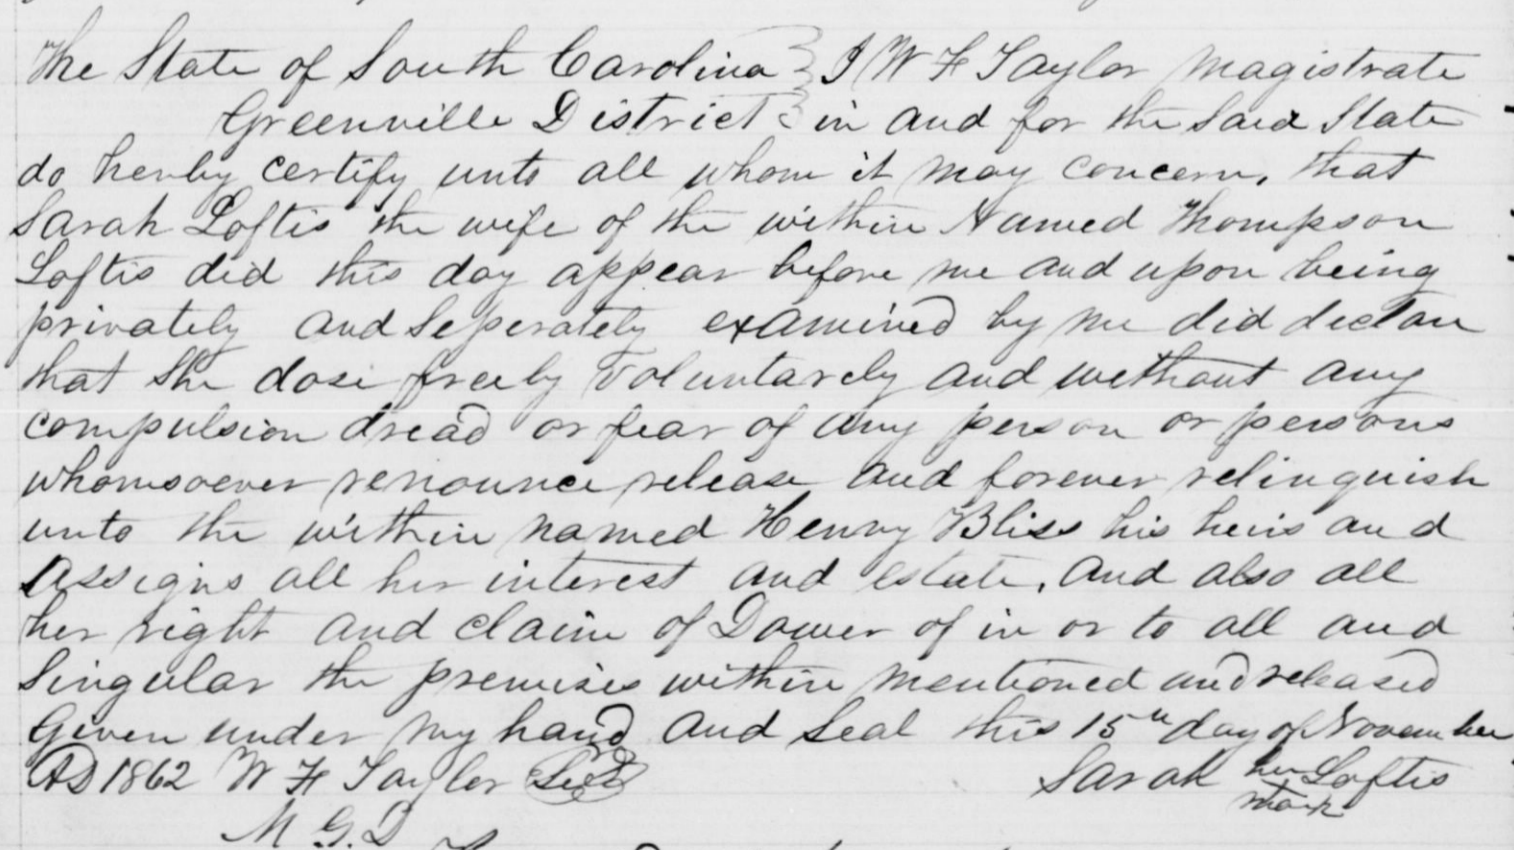 The State of South Carolina } I W F Taylor Magistrate
Greenville District } in and for the Said State
do herby certify unto all whom it may concern, that
Sarah Loftis the wife of the within Named Thompson
Loftis did this day appear before me and upon being
privately and Seperately examined by me did declare
that She dose freely voluntarely and without any
compulsion dread or fear of any person or persons
whomsoever renounce release and forever relinquish
unto the within named Henry Bliss his heirs and
Assigns all her interest and estate, And also all
her right and claim of Dower of in or to all and
Singular the premises within mentioned and released
Given under my hand and Seal this 15th day of November
AD 1862 W F Taylor Seal Sarah her Loftis
mark
M G D